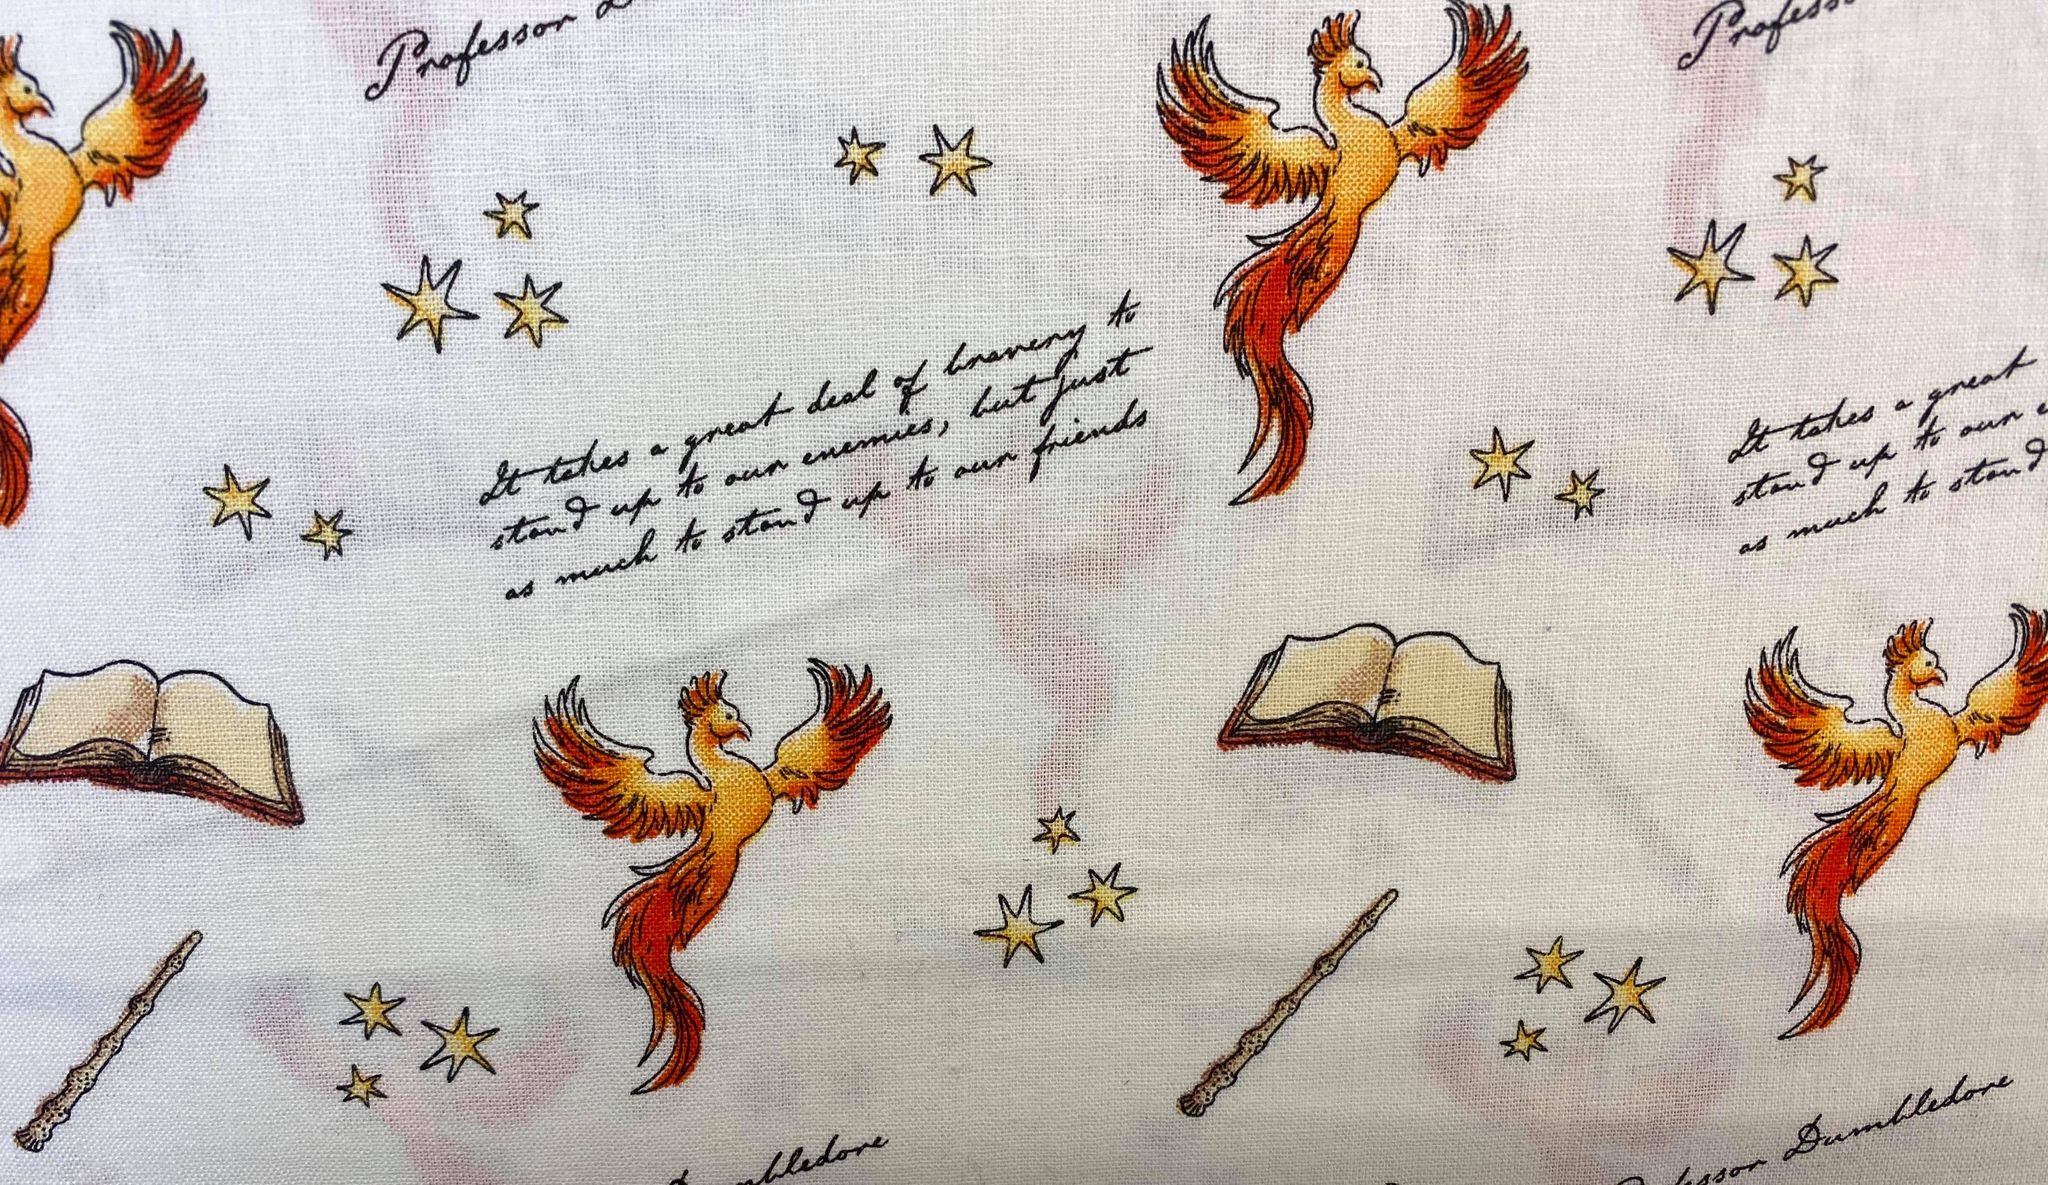 Professor
Profess
It takes a great deal of bravery to
stand up to our enemies, but just
as much to stand up to our friends
It takes a great
stand up to our
as much to stand
mbledore
fessor Dumbledore